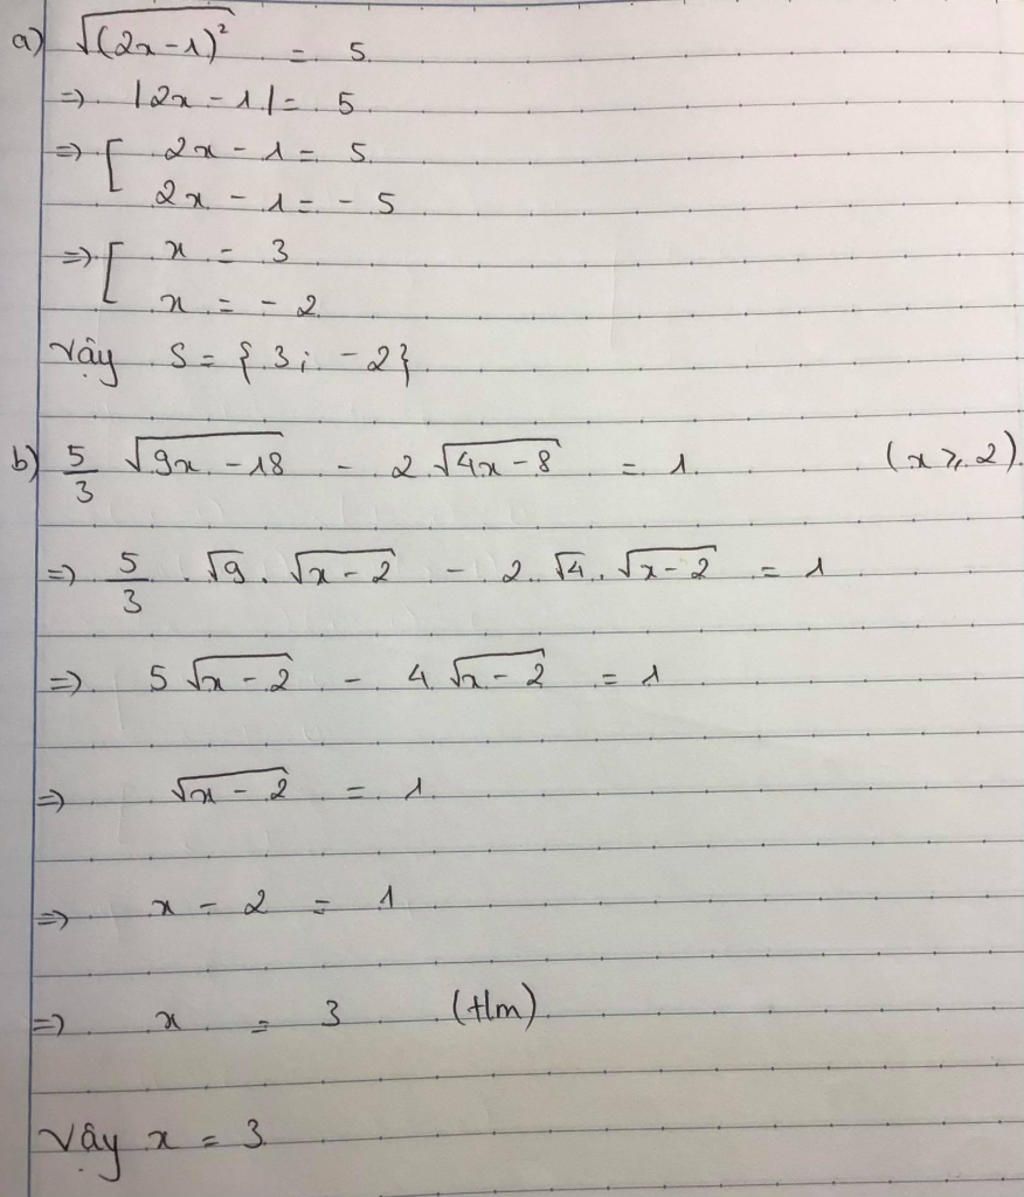 a) √(2x-1)² = 5
=> |2x - 1| = 5
=> [ 2x - 1 = 5
2x - 1 = - 5
=> [ x = 3
x = - 2
Vậy S = { 3 ; - 2 }
b) 5/3 √9x - 18 - 2 √4x - 8 = 1 (x ≥ 2)
=> 5/3 . √9 . √x - 2 - 2 . √4 . √x - 2 = 1
=> 5 √x - 2 - 4 √x - 2 = 1
=> √x - 2 = 1
=> x - 2 = 1
=> x = 3 (t/m)
Vậy x = 3